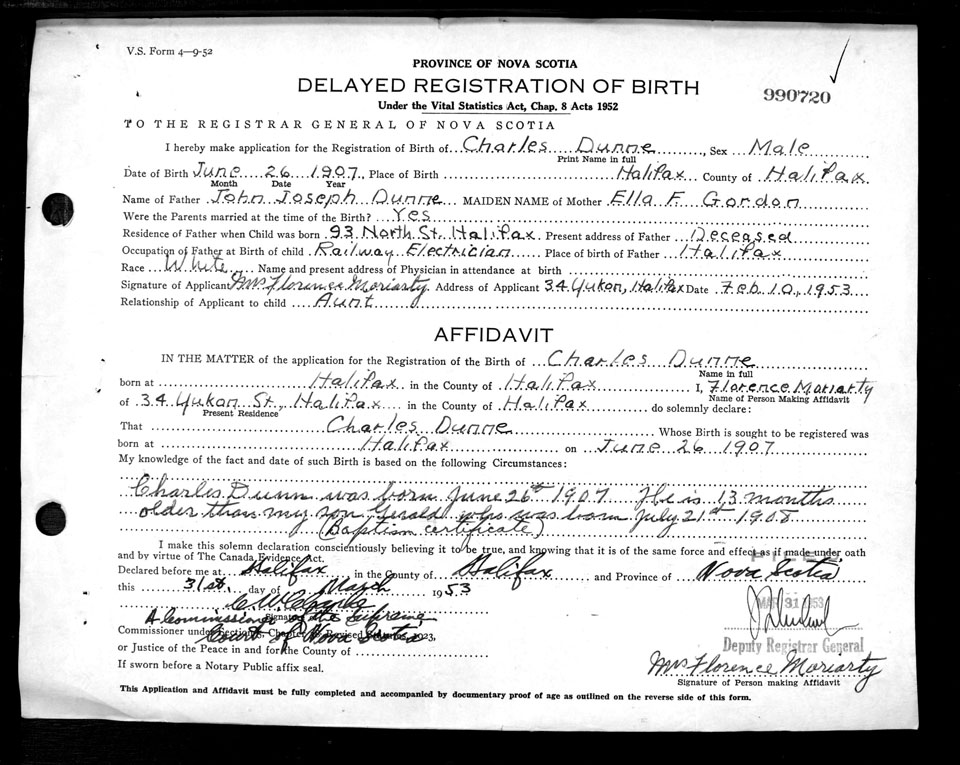 V.S. Form 4—9-52
PROVINCE OF NOVA SCOTIA
DELAYED REGISTRATION OF BIRTH
990720
Under the Vital Statistics Act, Chap. 8 Acts 1952
TO THE REGISTRAR GENERAL OF NOVA SCOTIA
I hereby make application for the Registration of Birth of Charles Dunne, Sex Male
Print Name in full
Date of Birth June 26 1907, Place of Birth Halifax County of Halifax
Month Date Year
Name of Father John Joseph Dunne MAIDEN NAME of Mother Ella F Gordon
Were the Parents married at the time of the Birth? Yes
Residence of Father when Child was born 93 North St. Halifax Present address of Father Deceased
Occupation of Father at Birth of child Railway Electrician Place of birth of Father Halifax
Race White Name and present address of Physician in attendance at birth
Signature of Applicant Mrs Florence Moriarty Address of Applicant 34 Yukon, Halifax Date Feb 10, 1953
Relationship of Applicant to child Aunt
AFFIDAVIT
IN THE MATTER of the application for the Registration of the Birth of Charles Dunne
Name in full
born at Halifax in the County of Halifax I, Florence Moriarty
Name of Person Making Affidavit
of 34 Yukon St., Halifax in the County of Halifax do solemnly declare:
Present Residence
That Charles Dunne Whose Birth is sought to be registered was
born at Halifax on June 26 1907
My knowledge of the fact and date of such Birth is based on the following Circumstances:
Charles Dunn was born June 26th 1907 He is 13 months
older than my son Gerald who was born July 21st 1908
(Baptism certificate)
I make this solemn declaration conscientiously believing it to be true, and knowing that it is of the same force and effect as if made under oath
and by virtue of The Canada Evidence Act.
Declared before me at Halifax in the County of Halifax and Province of Nova Scotia
this 31st. day of March 1953
MAR 31 1953
A Commissioner of the Supreme
Court of Nova Scotia
Commissioner under Section, Chapter Revised Statutes, 1923,
Deputy Registrar General
or Justice of the Peace in and for the County of
Mrs Florence Moriarty
If sworn before a Notary Public affix seal.
Signature of Person making Affidavit
This Application and Affidavit must be fully completed and accompanied by documentary proof of age as outlined on the reverse side of this form.